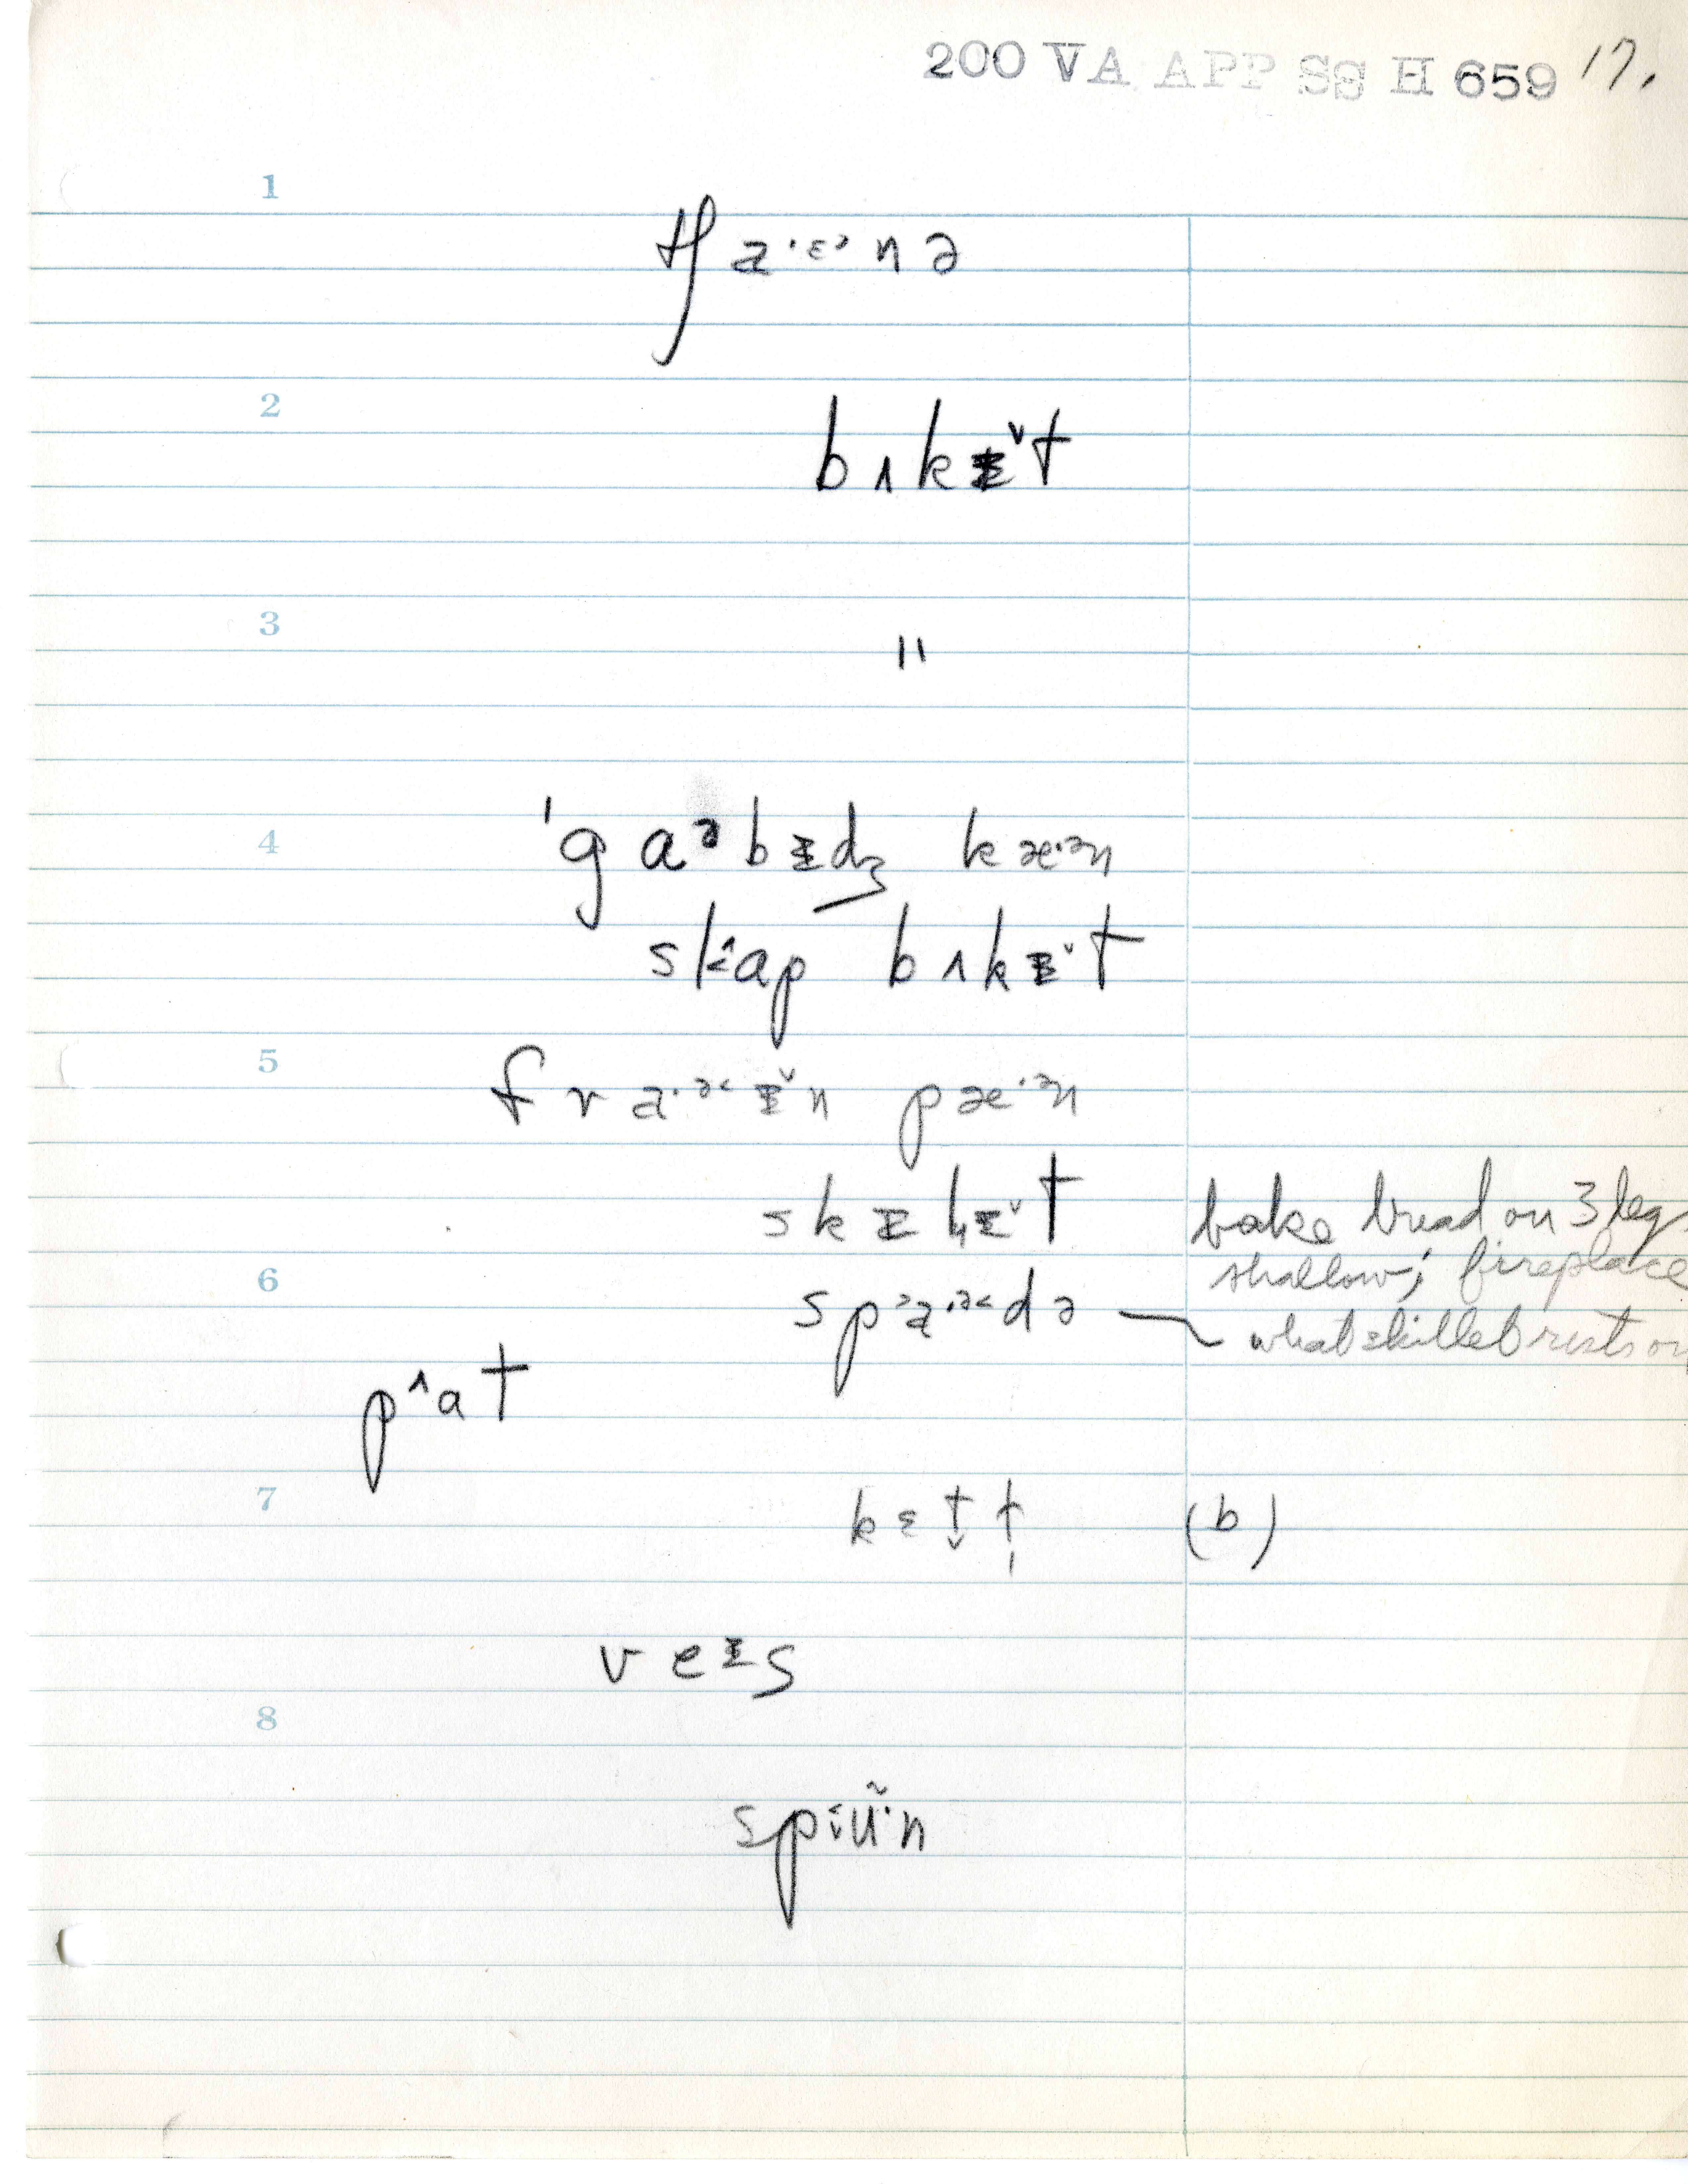 200 VA APP SS H 659 17.
1
tʃa·ᵋᵊnə
2
bʌkɪ̵ˇt
3
"
4
ˈgaᵊbɪ̵dʒ kæ·ᵊn
skˆap bʌkɪ̵ˇt
5
fra·ᵊ˂ɪ̵ˇn pæ·ᵊn
skɪ̵lɪ̵ˇt bake bread on 3 legs
shallow; fireplace
6
spˀa·ᵊ˂də — what skillet rests on
pˆat
7
kɛt̬t̩ (b)
veɪ̵s
8
spʉ̃·n